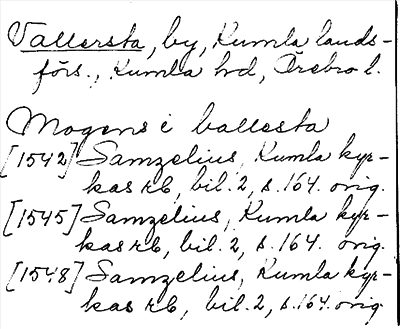 Vallersta, by, Kumla lands-
förs., Kumla hd, Örebro l.
Mogens i ballesta
[1542] Samzelius, Kumla kyr-
kas rb, bil. 2, s. 164. orig.
[1545] Samzelius, Kumla kyr-
kas rb, bil. 2, s. 164. orig.
[1548] Samzelius, Kumla kyr-
kas rb, bil. 2, s. 164. orig